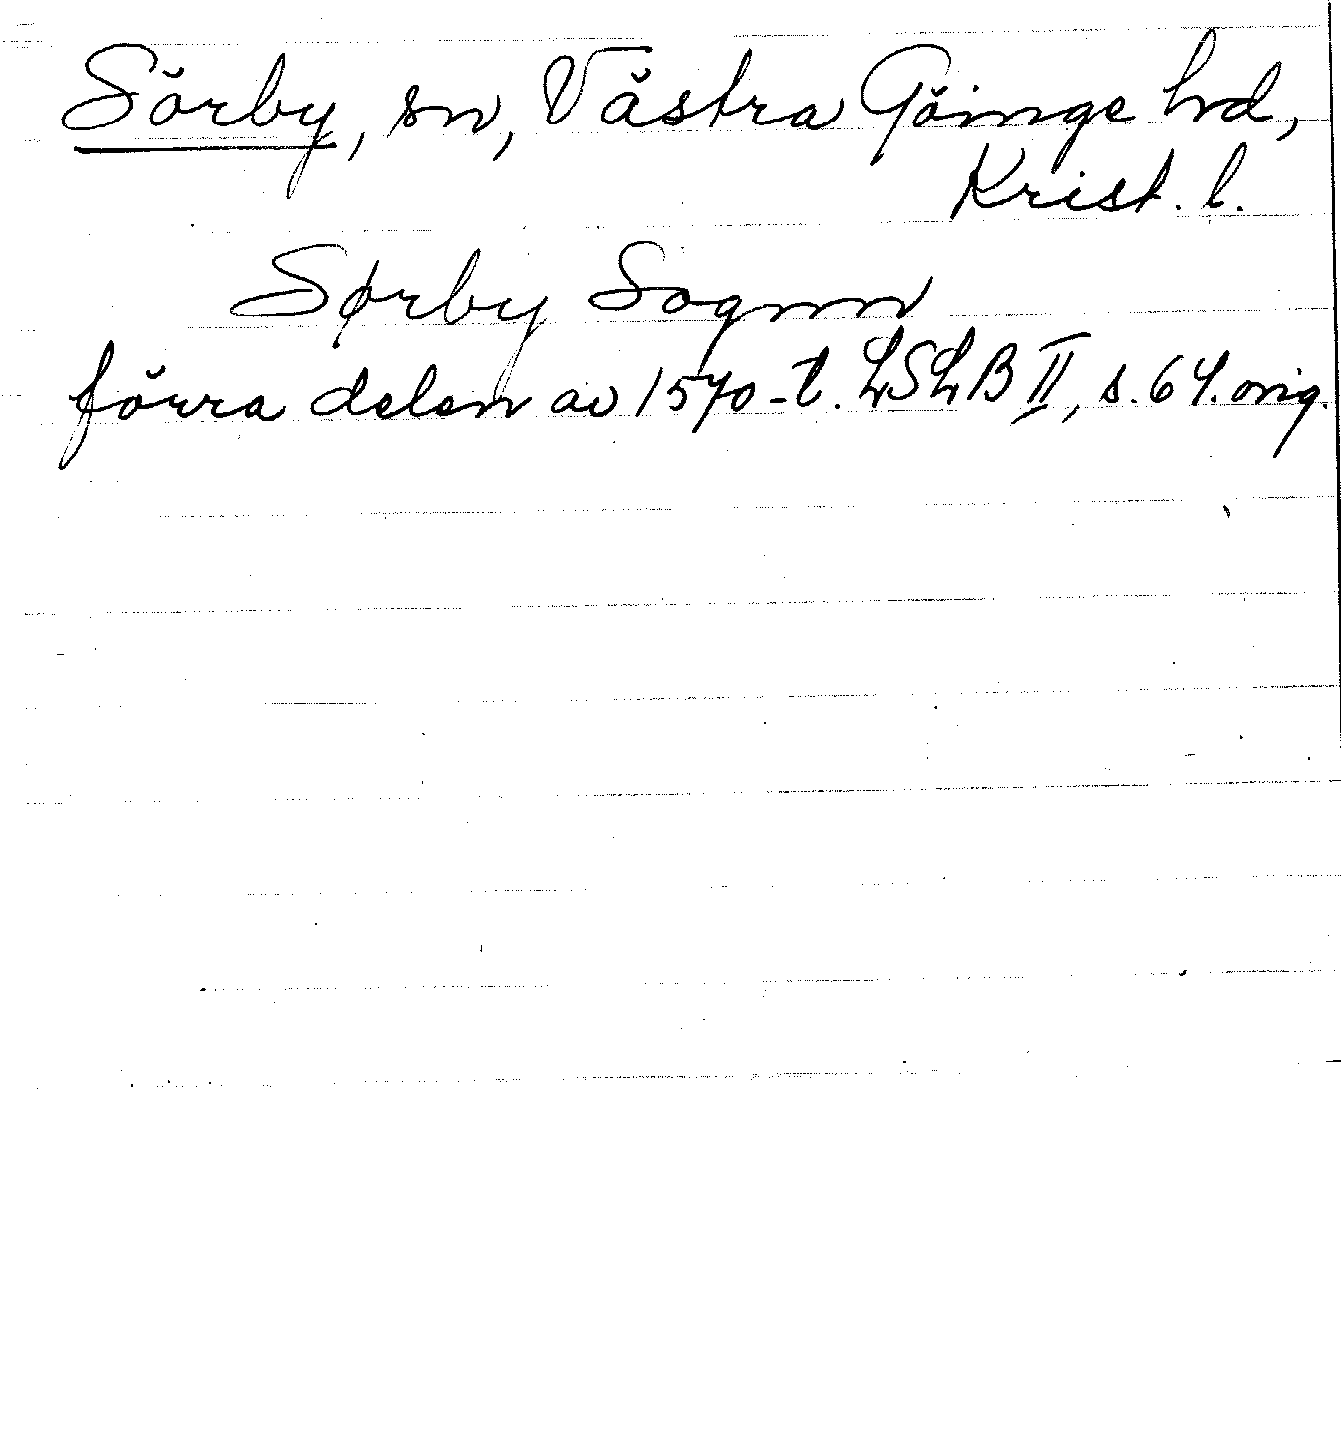 Sörby, sn, Västra Göinge hd,
Krist. l.
Sørby Sognn
förra delen av 1570-t. LSLB II, s. 64. orig.